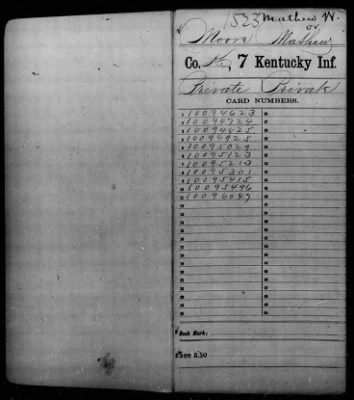 1523 Mathew W.
or
Moore Mathew
Co. , 7 Kentucky Inf.
Private Private
CARD NUMBERS.
10094623
10094724
10094825
10094925
10095029
10095123
10095213
10095301
10095415
10095496
10096087
Book Mark:
See also